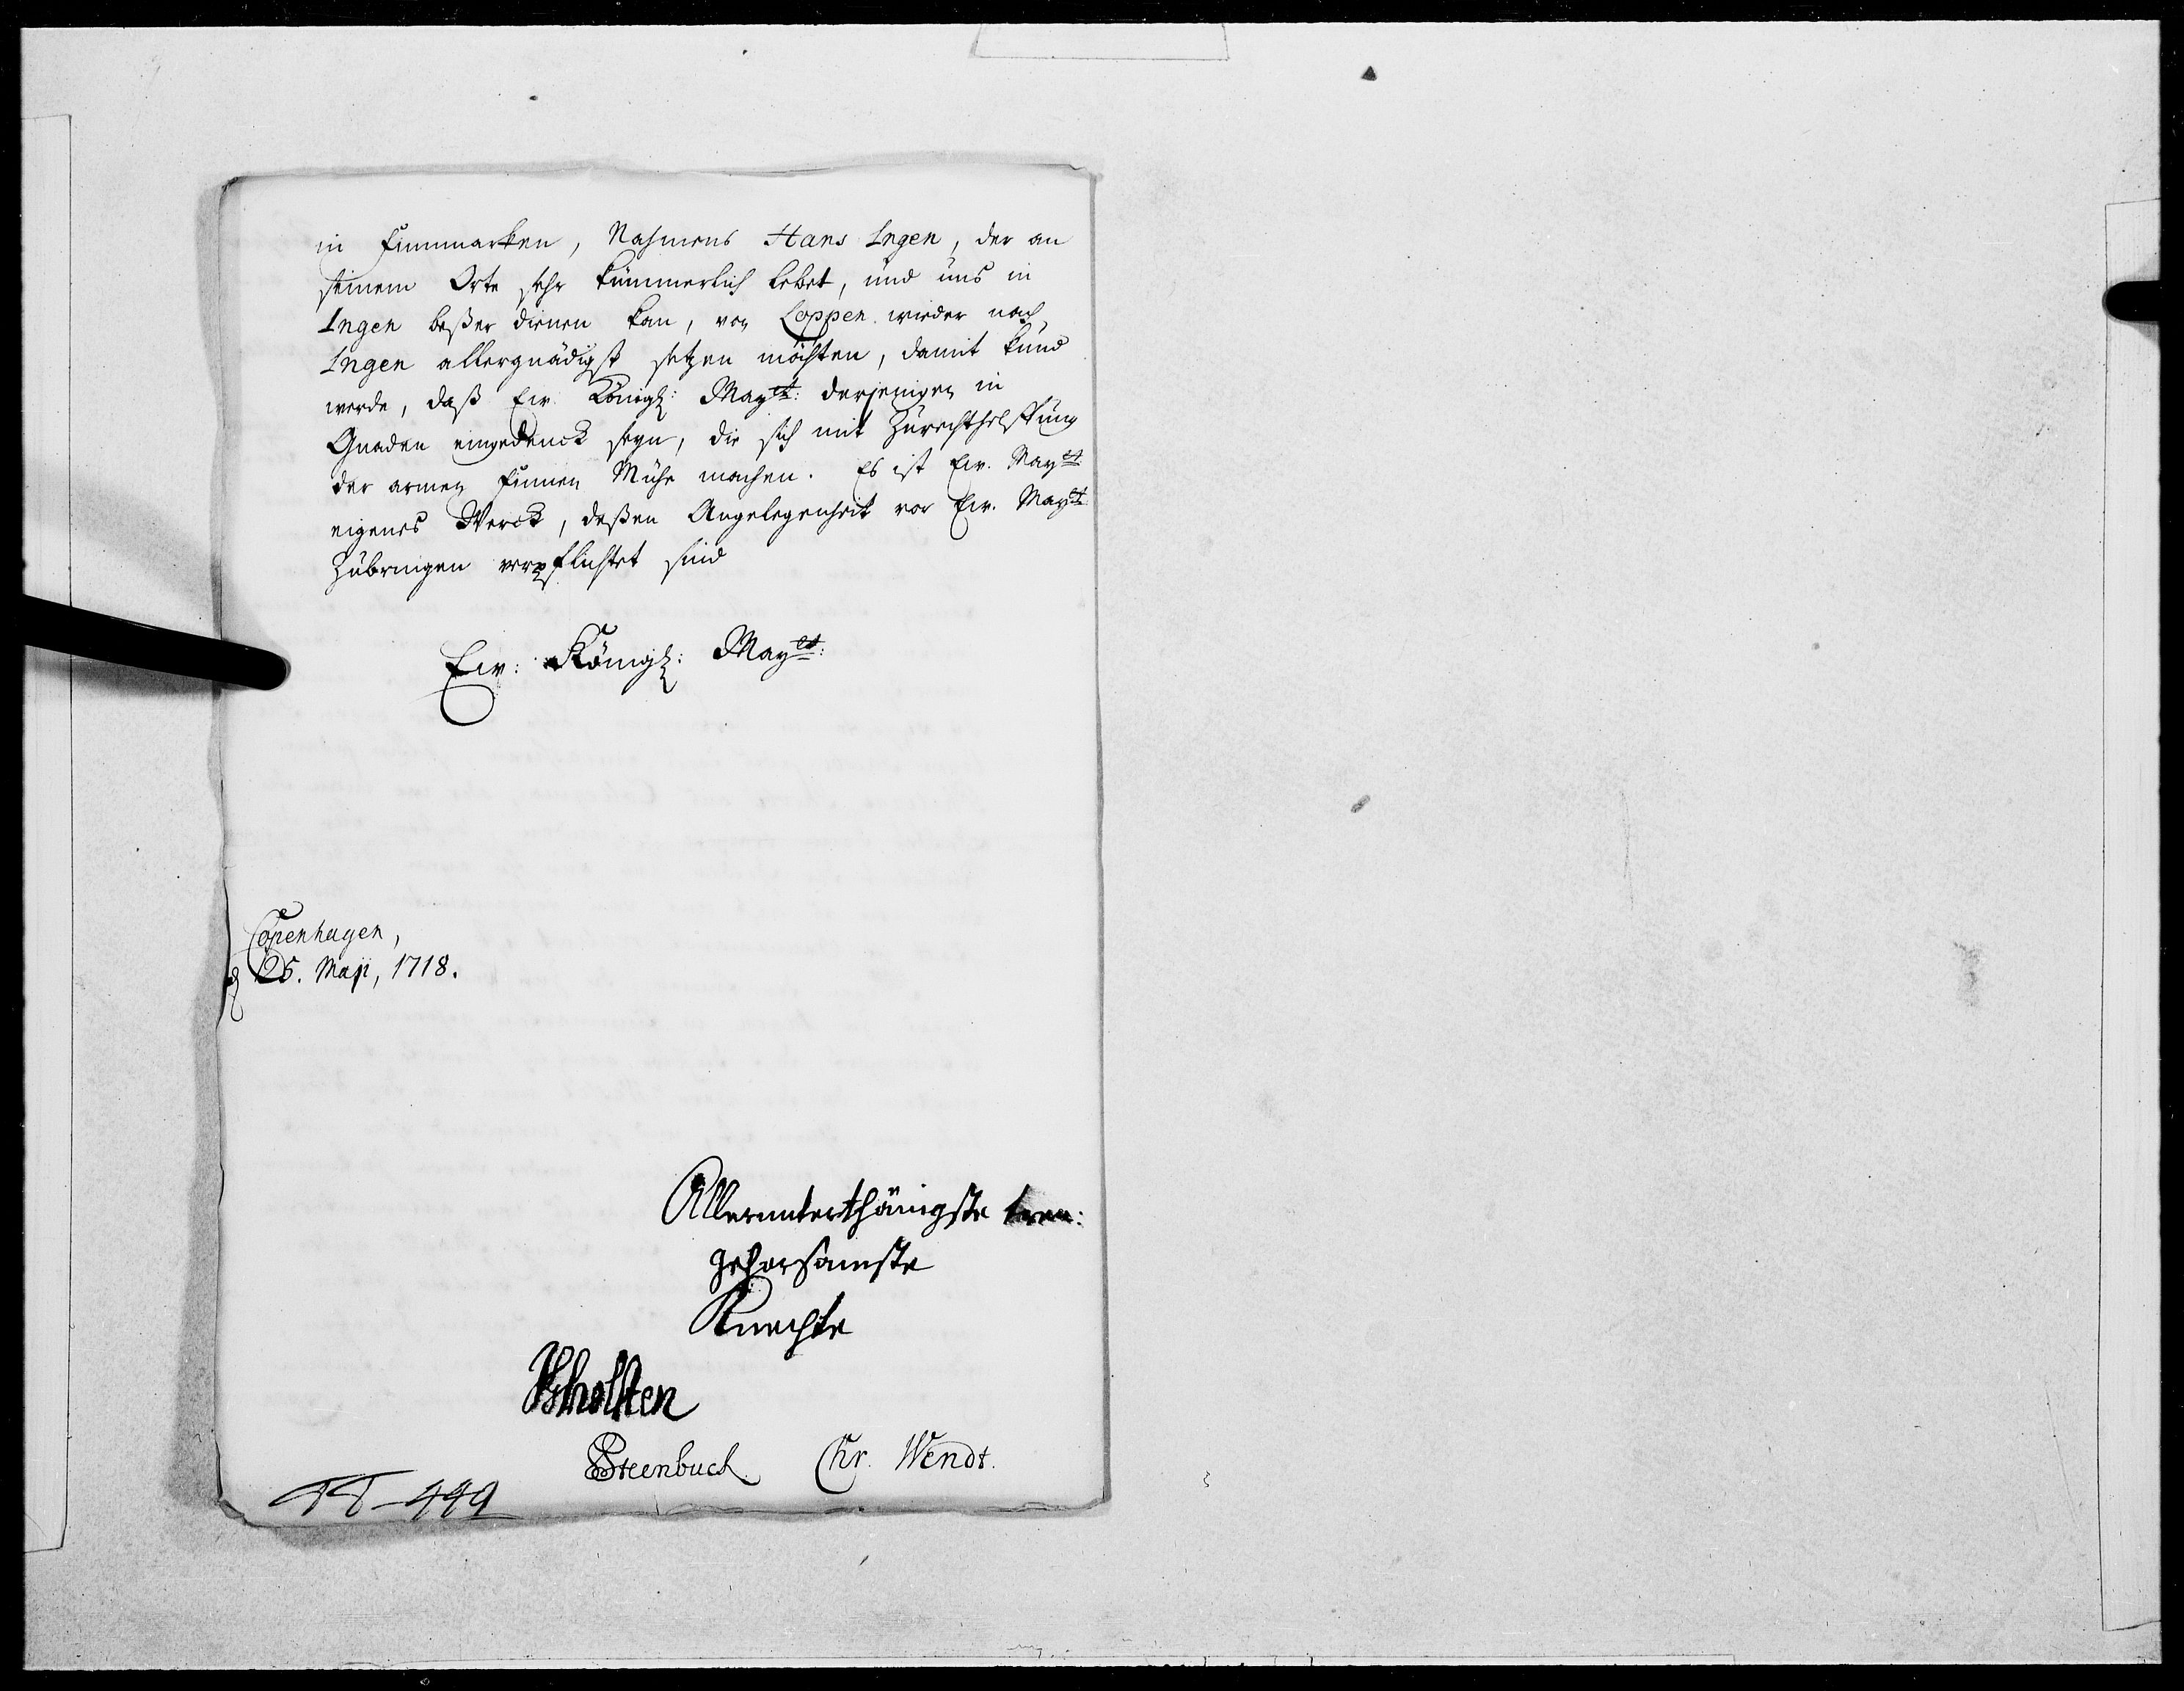 in Finnmarken, Nahmens Hans Ingen, der an
seinem Orte sehr kümmerlich lebet, und uns in
Ingen beßer dienen kan, von Loppen wieder nach
Ingen allergnädigst setzen möchten, damit kund
werde, daß Ew. Königl: Mayet: derjenigen in
Gnaden eingedenck seyn, die sich mit Zurechthelffung
der armen Finnen Mühe machen. Es ist Ew. Mayet
eigenes Werck, deßen Angelegenheit vor Ew. Mayet
Zubringen verpflichtet sind
Ew: Königl: Mayet:
Copenhagen,
d 25. Maji, 1718.
Allerunterthänigste treu:
gehorsamste
Knechte
JGholsten
JSteenbuch. Chr. Wendt.
TT-449